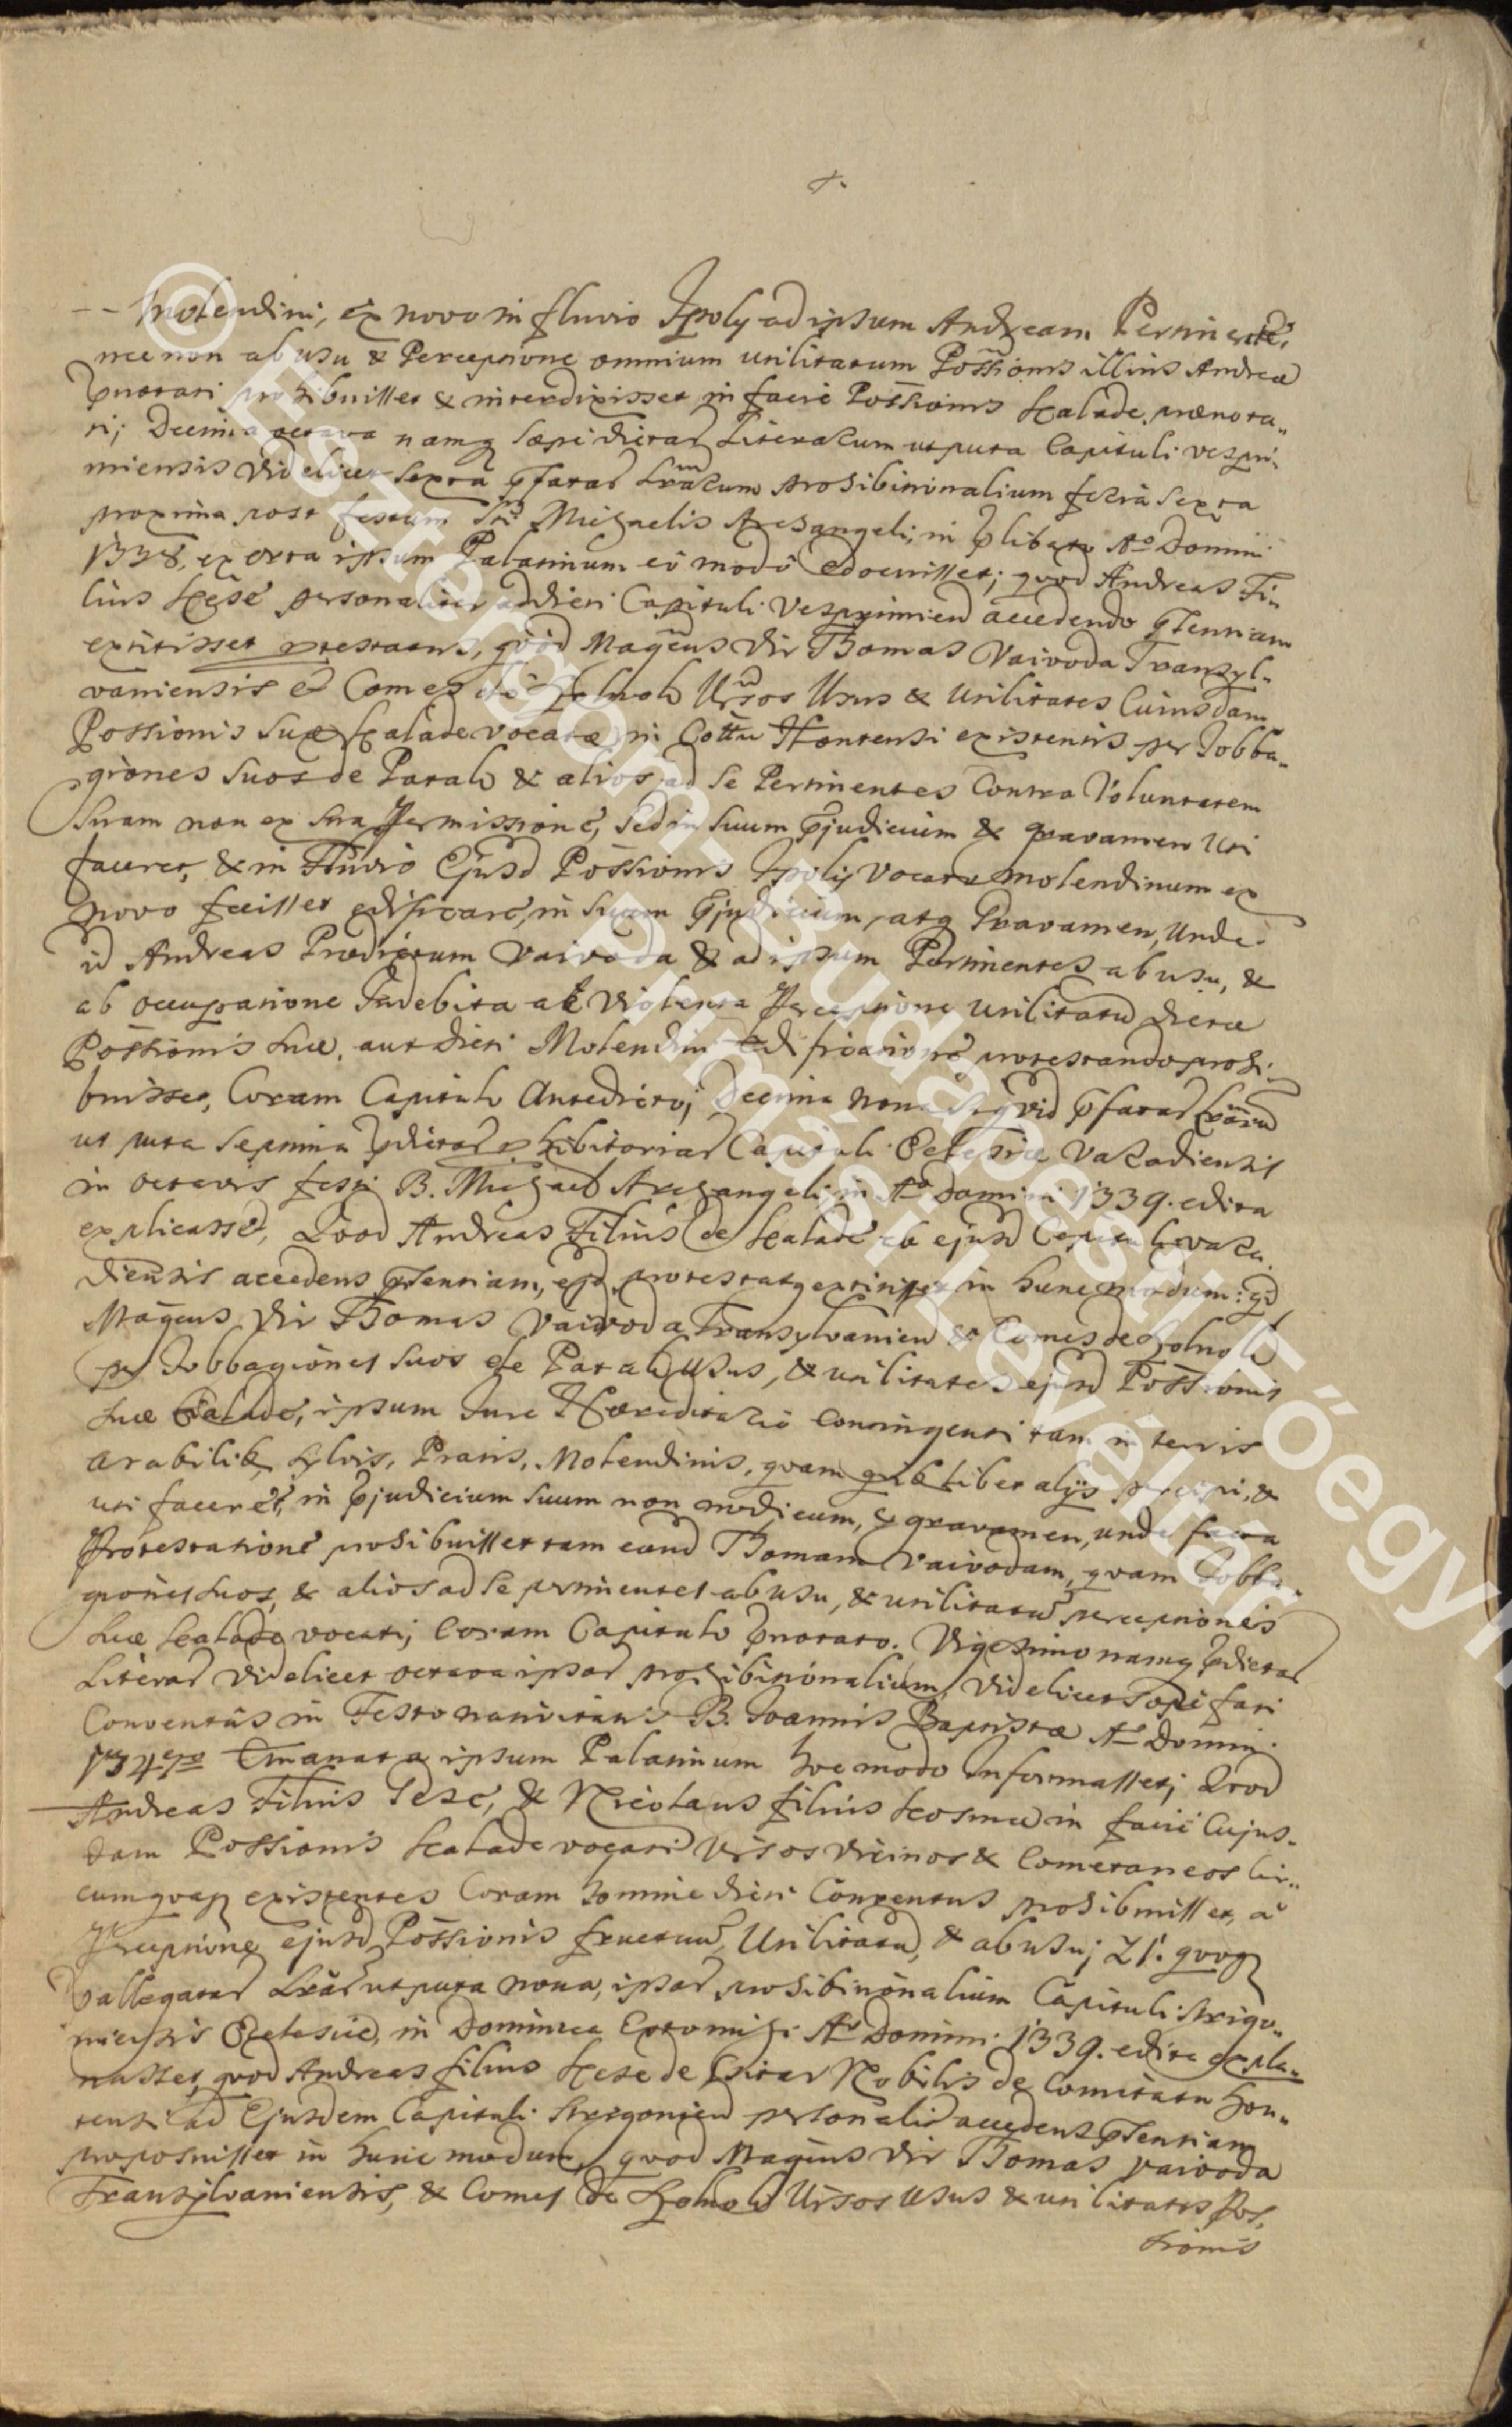 -- molendini, ex novo in fluvio Ipoly ad ipsum Andream Pertinente,
nec non ab usu & Perceptione omnium utilitatum Possionis illius Andreæ
pnotati prohibuisset & interdixisset in facie Possionis Kalade prænota„
ti; Decima octava namq sæpe dictar Literarum utputa Capituli Vespri„
miensis videlicet sexta pfatar Lrarum prohibitionalium feria sexta
proxima post festum Sti Michaelis Archangeli, in plibato Ao Domini
1338, exorta ipsum Palatinum eo modo edocuisset; quod Andreas Fi„
lius personaliter ad dicti Capituli Vesprimien accedendo psentiam
extitisset protestatus, qood Magcus Vir Thomas Vaivoda Transyl„
vaniensis & Comes de Zolnok Ursos Usus & Utilitates Cuiusdam
Possionis suæ Kalade vocatæ in Cottu Hontensi existentis per Jobba„
giones suos de Patak & alios ad se Pertinentes Contra Voluntatem
suam non ex sua Permissione, sed in suum pjudicium & gravamen Uti
faceret, & in Fluvio Ejusd Possionis Ipoly vocato molendinum ex
novo fecisset edificare, in suum pjudicium, atq Gravamen, Unde
id Andreas Prædictum Vaivoda & ad ipsum Pertinentes ab usu, &
ab occupatione Indebita ac Violenta Perceptione utilitatu dictæ
Possionis suæ, aut dicti Molendini Edificatione protestando prohi„
buisset, Coram Capitulo Antedicto; Decima nona siqvid pfatar Lrarum
ut puta septima pdictar phibitoriar Capituli Ecclesiæ Varadiensis
in octavis festi B. Michael Archangeli in Ao Domini 1339. edita
explicasset, Quod Andreas Filius de Kalade ab ejusd Capituli Vara„
diensis accedens psentiam, protestatq extitisset in hunc modum: qd
Magcus Vir Thomas Vaivoda Transylvanien & Comes de Zolnok
per Jobbagiones suos de Patak Usus, & utilitates ejusd Possionis
suæ Kalade, ipsum Jure Hæreditario contingenti tam in terris
arabilib, sylvis, Pratis, Molendinis, qvam qbuslibet alijs percipi, &
uti faceret, in pjudicium suum non modicum, & gravamen, unde facta
Protestatione prohibuisset tam eand Thomam Vaivodam, qvam Jobba„
giones suos, & alios ad se pertinentes ab usu, & utilitatu perceptioneis
suæ Kalade vocati; Coram Capitulo pnotato. Vigesimo namq pdictar
Literar Videlicet octava ipsar prohibitionalium Videlicet sæpe fati
Conventus in Festo nativitatis B. Joannis Baptistæ Ao Domini
Emanata ipsum Palatinum hoc modo Informasset; Qvod
Andreas Filius Tese, & Nicolaus filius Kosmæ in facie Cujus„
dam Possionis Kalade vocati Ursos Vicinos & Cometaneos Cir„
cumqvaq existentes Coram homine dicti Conventus prohibuisset, a
Perceptione ejusd Possionis fructuu, Utilitatu, & ab usu; 21. qvoq
pallegatar Lrar utputa nona, ipsar prohibitionalium Capituli Strigo„
niensis Ecclesiæ, in Dominica Exto mihi Ao Domini 1339. edita expla„
nasset, qvod Andreas filius Kese de Nobilis de Comitatu Hon„
tensi ad Ejusdem Capituli Strigonien personalit accedens psentiam
proposuisset in hunc modum, qvod Magcus Vir Thomas Vaivoda
Transylvaniensis, & Comes de Zolnok Ursos Usus & utilitates Pos„
sionis